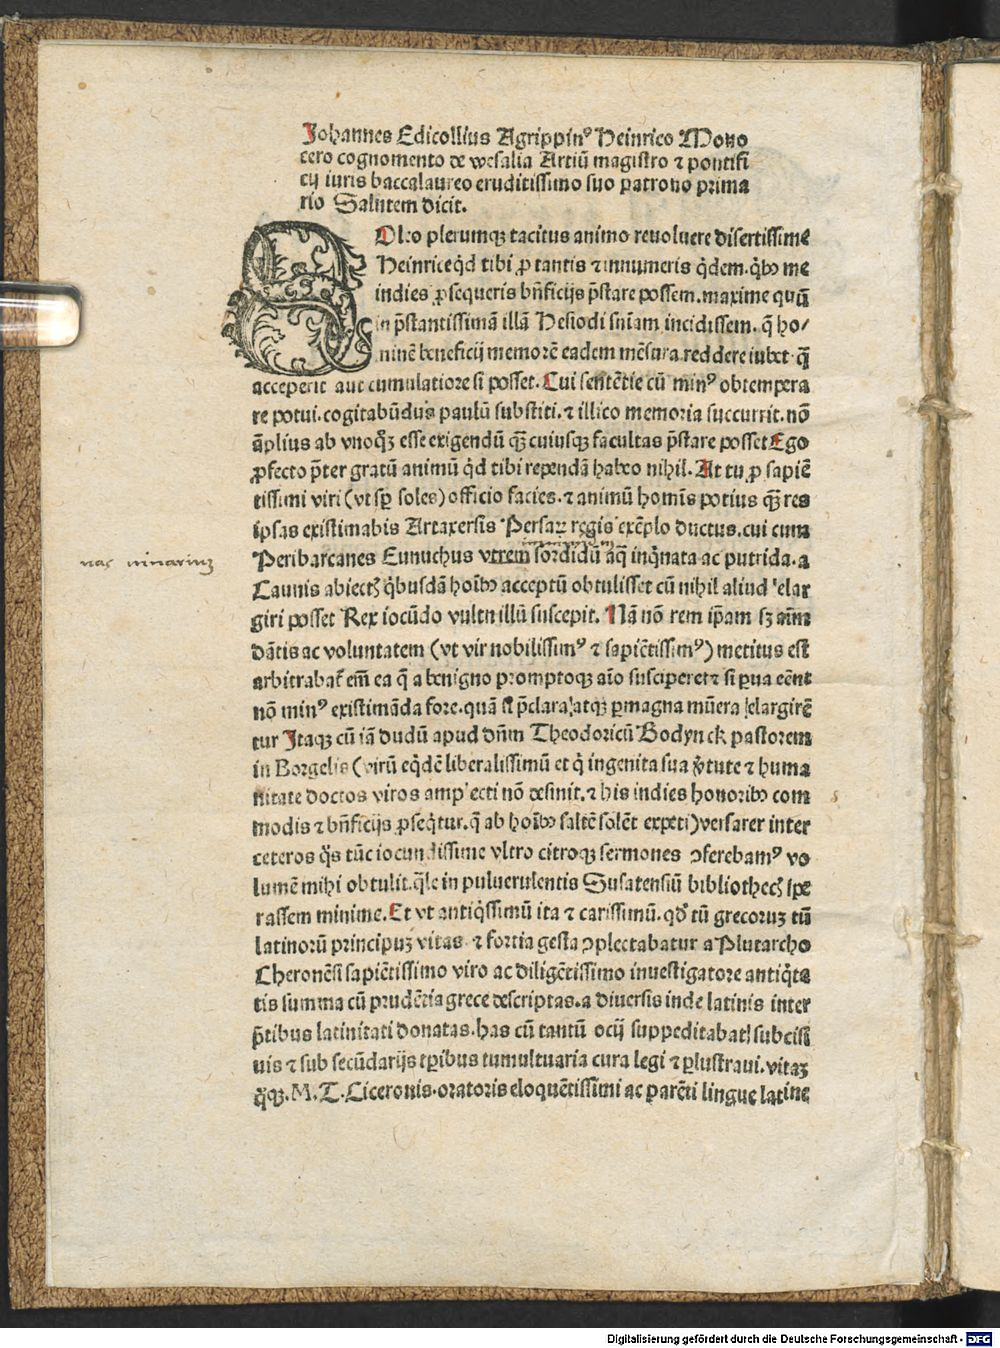 Johannes Edicollius Agrippinꝰ Heinrico Mono
cero cognomento de wesalia Artiū magistro ⁊ pontifi
cij iuris baccalaureo eruditissimo suo patrono prima
rio Salutem dicit.
Oleo plerumqꝫ tacitus animo reuoluere disertissime
Heinrice qd̛ tibi ꝓ tantis ⁊ innumeris qdem. qbꝰ me
indies ꝓsequeris bn̄ficijs p̄stare possem. maxime quū
in p̄stantissimā illā Hesiodi sn̄iam incidissem. q̄ ho/
minē beneficij memorē eadem mēsura reddere iubet qꝫ̄
acceperit aut cumulatiore si posset. Cui sentētie cū minꝰ obtempera
re potui. cogitabūdus paulū substiti. ⁊ illico memoria succurrit. nō
āplius ab vnoqꝫ esse exigendū qꝫ̄ cuiusqꝫ facultas p̄stare posset Ego
ꝓfecto p̄ter gratū animū qd̛ tibi rependā habeo nihil. At tu ꝓ sapiē
tissimi viri (vt sꝑ soles) officio facies. ⁊ animū homīs potius qꝫ̄ res
ipsas existimabis Artaxersis Persaꝝ regis exēplo ductus. cui cum
Peribarcanes Eunuchus vtrem sordidū aq̄ inq̄nata ac putrida. a
nas vinariuꝫ
Caunis abiect; qbusdā hoībꝰ acceptū obtulisset cū nihil aliud elar
giri posset Rex iocūdo vultu illū suscepit. Nā nō rem ip̄am sꝫ aīm
dātis ac voluntatem (vt vir nobilissimꝰ ⁊ sapiētissimꝰ) metitus est
arbitrabat̄ em̄ ea q̄ a benigno promptoqꝫ aīo susciperet ⁊ si ꝑua eēnt
nō minꝰ existimāda fore. quā si p̄clara atqꝫ ꝑmagna mūera elargirē
tur Itaqꝫ cū iā dudū apud dn̄m Theodoricū Bodynck pastorem
in Borgelis (virū eqdē liberalissimū et q̄ ingenita sua v̛tute ⁊ huma
nitate doctos viros amplecti nō desinit. ⁊ his indies honoribꝰ com
modis ⁊ bn̄ficijs ꝓseqtur. q̄ ab hoībꝰ saltē solēt expeti) versarer inter
ceteros qs̛ tūc iocundissime vltro citroqꝫ sermones ꝯferebamꝰ vo
lumē mihi obtulit. qle in puluerulentis Susatensiū bibliothecꝭ spe
rassem minime. Et vt antiqssimū ita ⁊ carissimū. qd̛ tū grecoruꝫ tū
latinorū principuꝫ vitas ⁊ fortia gesta ꝯplectabatur a Plutarcho
Cheronēsi sapiētissimo viro ac diligētissimo inuestigatore antiqta
tis summa cū prudētia grece descriptas. a diuersis inde latinis inter
p̄tibus latinitati donatas. has cū tantū ocij suppeditabat subcisi
uis ⁊ sub secūdarijs tp̄ibus tumultuaria cura legi ⁊ ꝑlustraui. vitaꝫ
qꝫ̄qꝫ. M. T. Ciceronis. oratoris eloquētissimi ac parēti lingue latine
Digitalisierung gefördert durch die Deutsche Forschungsgemeinschaft - DFG